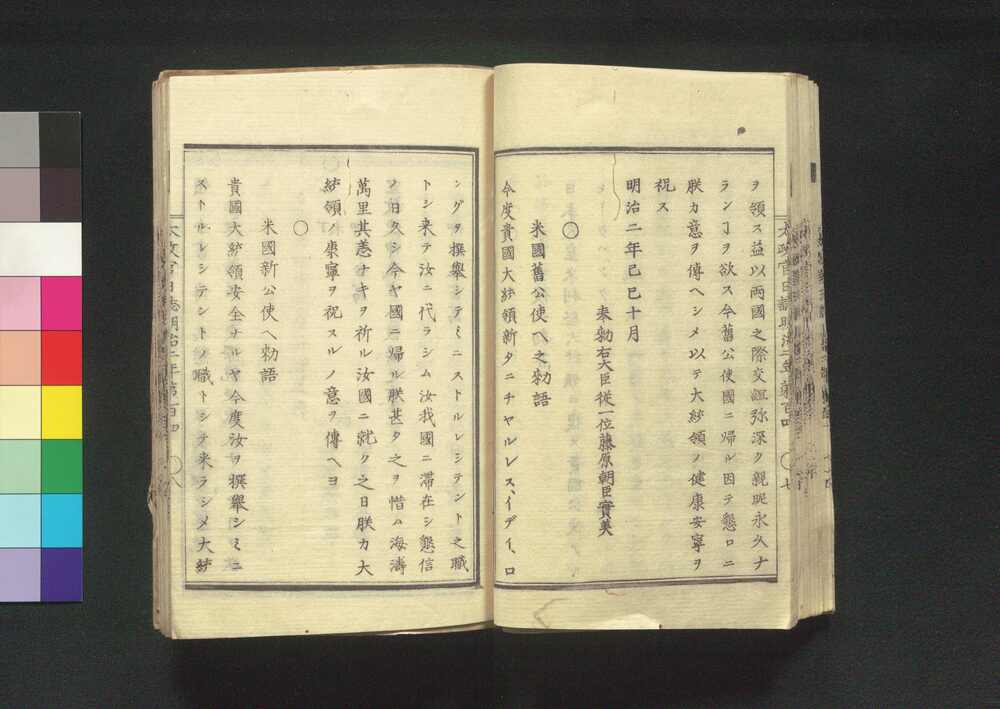 ヲ領ス益以兩國之際交誼弥深ク親眤永久ナ
ランヿヲ欲ス今舊公使國ニ帰ル因テ懇ロニ
朕カ意ヲ傳ヘシメ以テ大統領ノ健康安寧ヲ
祝ス
明治二年己巳十月
奉勅右大臣從一位藤原朝臣實美
〇
米國舊公使ヘ之勅語
今度貴國大統領新タニチヤルレス、イデイ、ロ
ングヲ撰擧シテミニストルレシテント之職
トシ来テ汝ニ代ラシム汝我國ニ滞在シ懇信
ノ日久シ今ヤ國ニ帰ル朕甚タ之ヲ惜ム海濤
萬里其恙ナキヲ祈ル汝國ニ就ク之日朕カ大
統領ノ康寧ヲ祝スルノ意ヲ傳ヘヨ
〇
米國新公使ヘ勅語
貴國大統領安全ナルヤ今度汝ヲ撰擧シミニ
ストルレシテントノ職トシテ来ラシメ大統
太政官日誌明治二年第百四
〇八